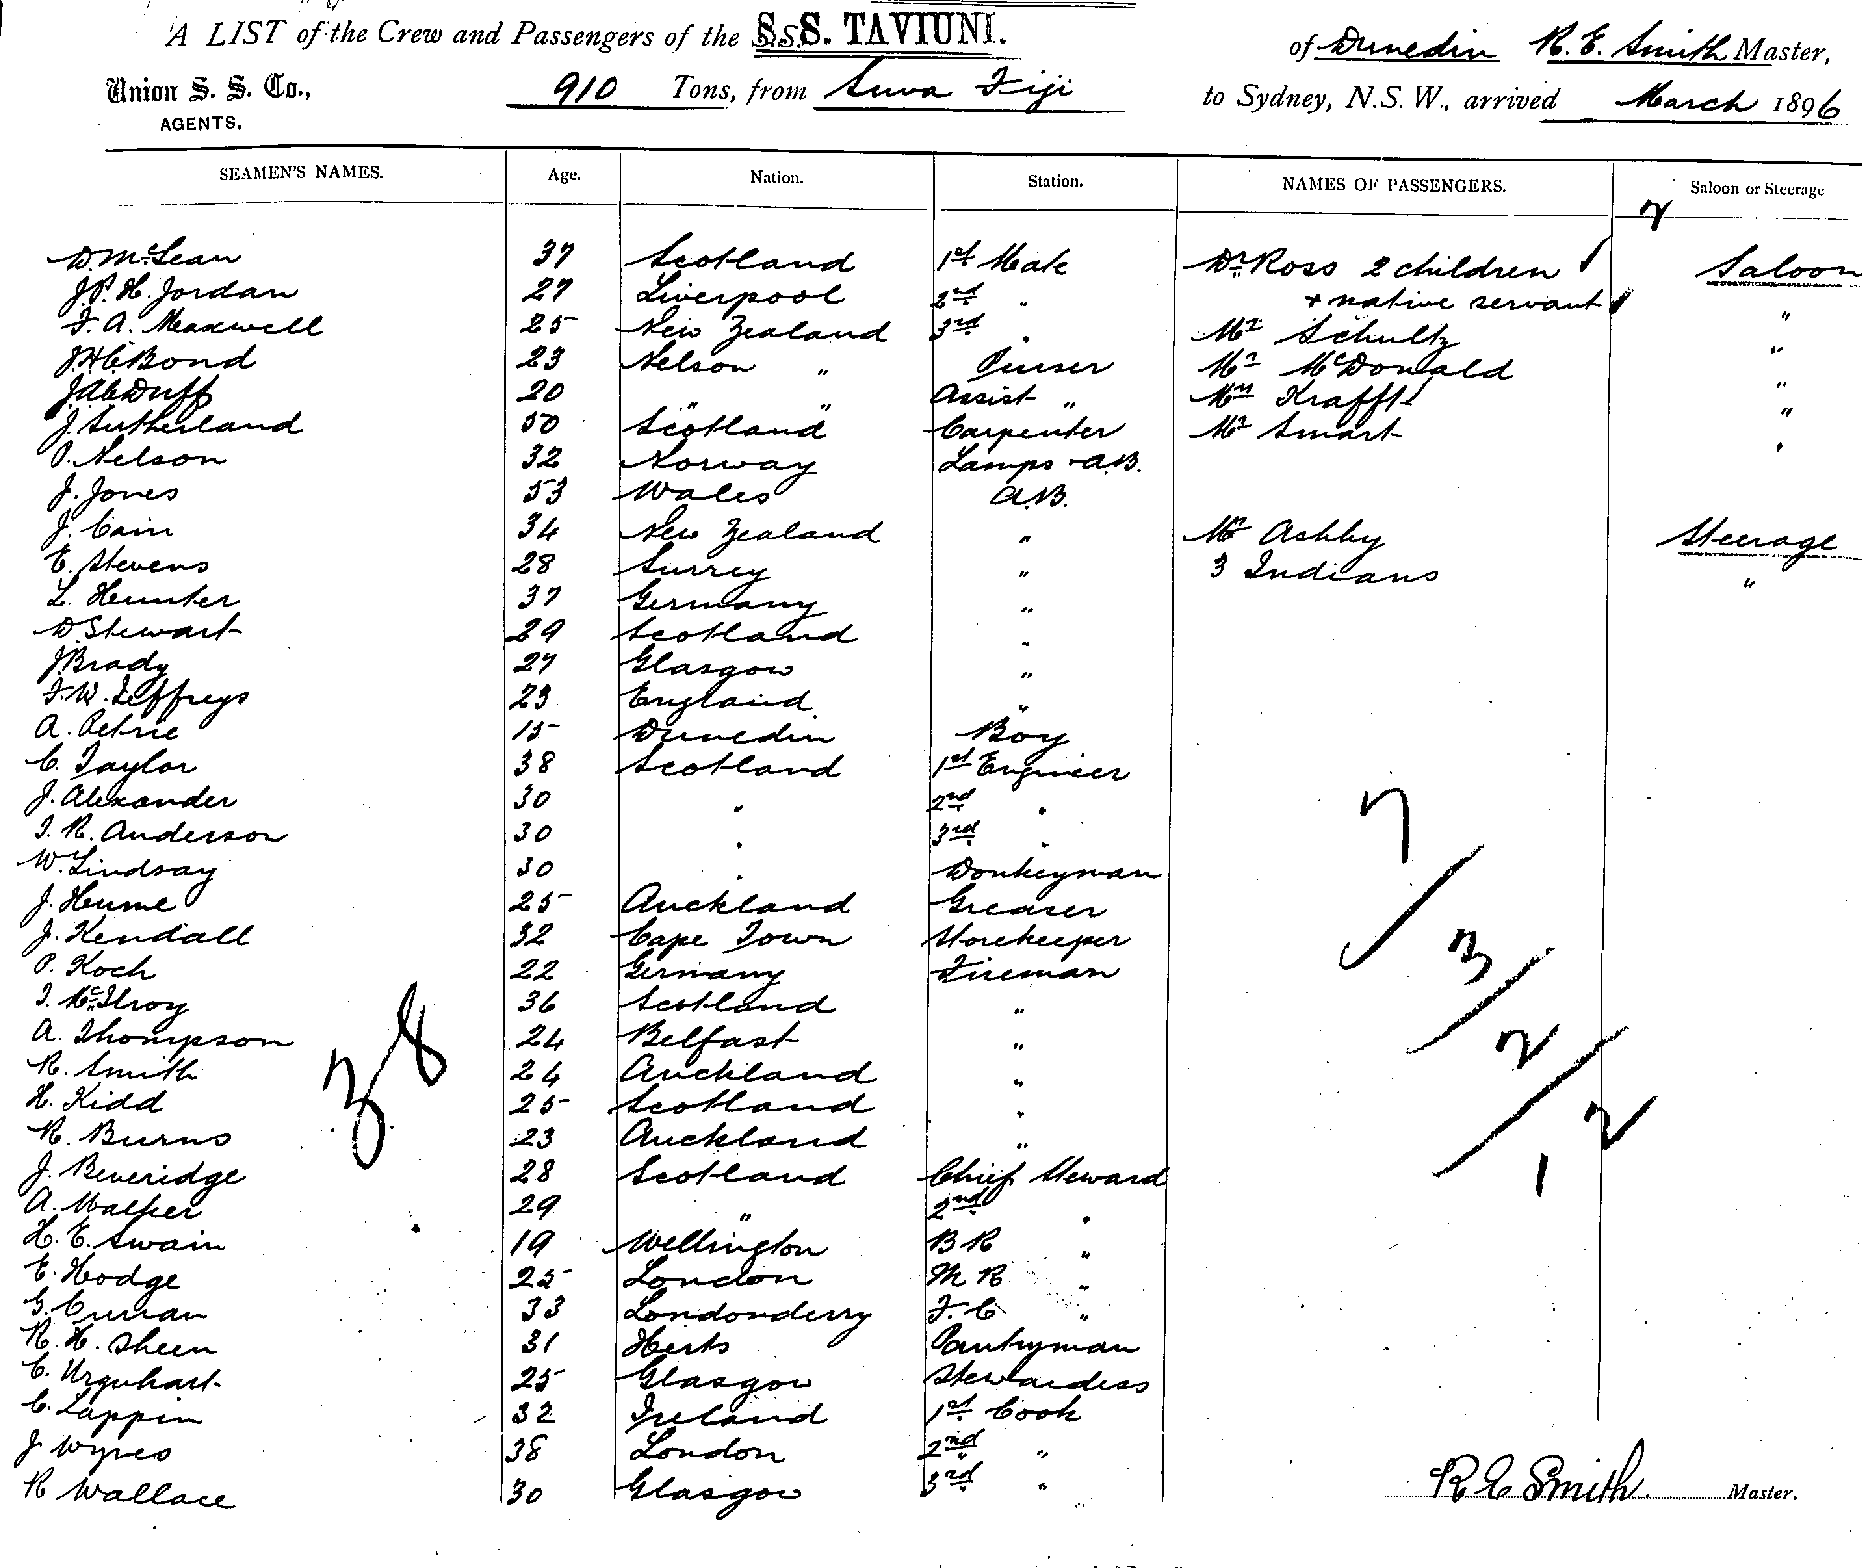 A LIST of the Crew and Passengers of the S.S. TAVIUNI. of Dunedin R. E. Smith Master,
Union S. S. Co., 910 Tons, from Suva Fiji to Sydney, N.S.W., arrived March 1896
AGENTS.
SEAMEN'S NAMES. Age. Nation. Station. NAMES OF PASSENGERS. Saloon or Steerage
2
D. McLean 37 Scotland 1st Mate Dr. Ross 2 children Saloon
J. P. H. Jordan 27 Liverpool 2nd " + native servant "
F. A. Maxwell 25 New Zealand 3rd " Mr Schultz "
J H C Bond 23 Nelson " Purser Mr McDonald "
Duff 20 " " Assist " Krafft "
J. Sutherland 50 Scotland Carpenter Mr Smart "
P. Nelson 32 Norway Lamps - A.B.
J. Jones 53 Wales A.B.
J. Cain 34 New Zealand " Mr Ashby Steerage
E. Stevens 28 Surrey " 3 Indians "
L. Hunter 37 Germany "
D. Stewart 29 Scotland "
J Brady 27 Glasgow "
F. W. Jeffreys 23 England "
A. Petrie 15 Dunedin Boy
C. Taylor 38 Scotland 1st Engineer
J. Alexander 30 " 2nd "
T. R. Anderson 30 " 3rd "
W. Lindsay 30 " Donkeyman
J. Hume 25 Auckland Greaser
J. Kendall 32 Cape Town Storekeeper
P. Koch 22 Germany Fireman
T. McIlroy 36 Scotland "
A. Thompson 24 Belfast "
R. Smith 24 Auckland "
H. Kidd 25 Scotland "
R. Burns 23 Auckland "
J. Beveridge 28 Scotland Chief Steward
A. Walker 29 " 2nd "
H. E. Swain 19 Wellington B R "
E. Hodge 25 London M R "
G. Curran 33 Londonderry F. C "
R. H. Sheen 31 Herts Pantryman
C. Urquhart 25 Glasgow Stewardess
C. Lappin 32 Ireland 1st Cook
J Wynes 38 London 2nd "
R Wallace 30 Glasgow 3rd "
38
7 / 3 / 2 / 1 2
R E Smith Master.